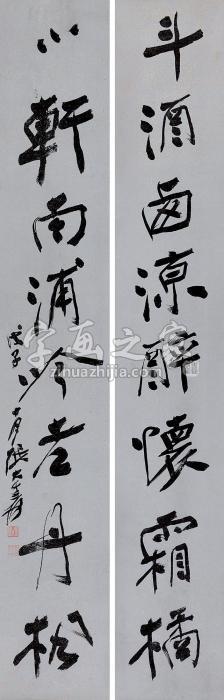 斗酒卥涼醉懷霜橘
小軒南浦吟老丹楓
戊子十月張大千爰
字画之家
zihuazhijia.com